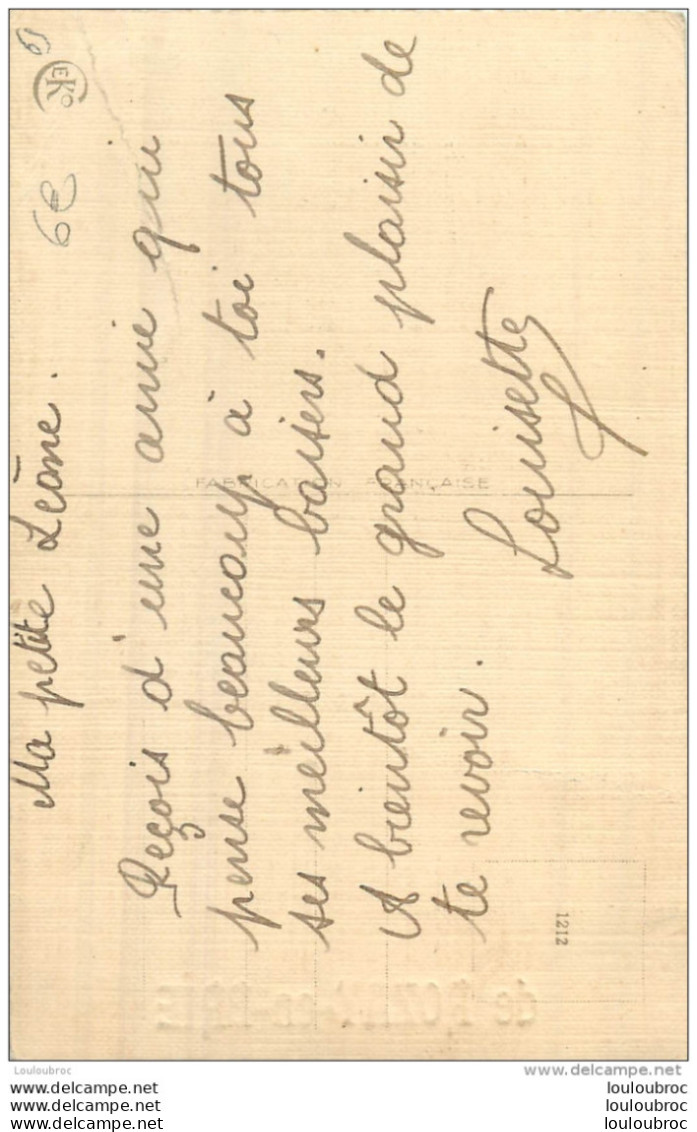 Ma petite Léone.
Reçois d'une amie qui
pense beaucoup à toi tous
ses meilleurs baisers.
A bientôt le grand plaisir de
te revoir.
Louisette
6€
EKO
FABRICATION FRANÇAISE
1212
Louloubroc
delcampe.net
www.delcampe.com
www.delcampe.com
www.delcampe.com
louloubroc
louloubroc
louloubroc